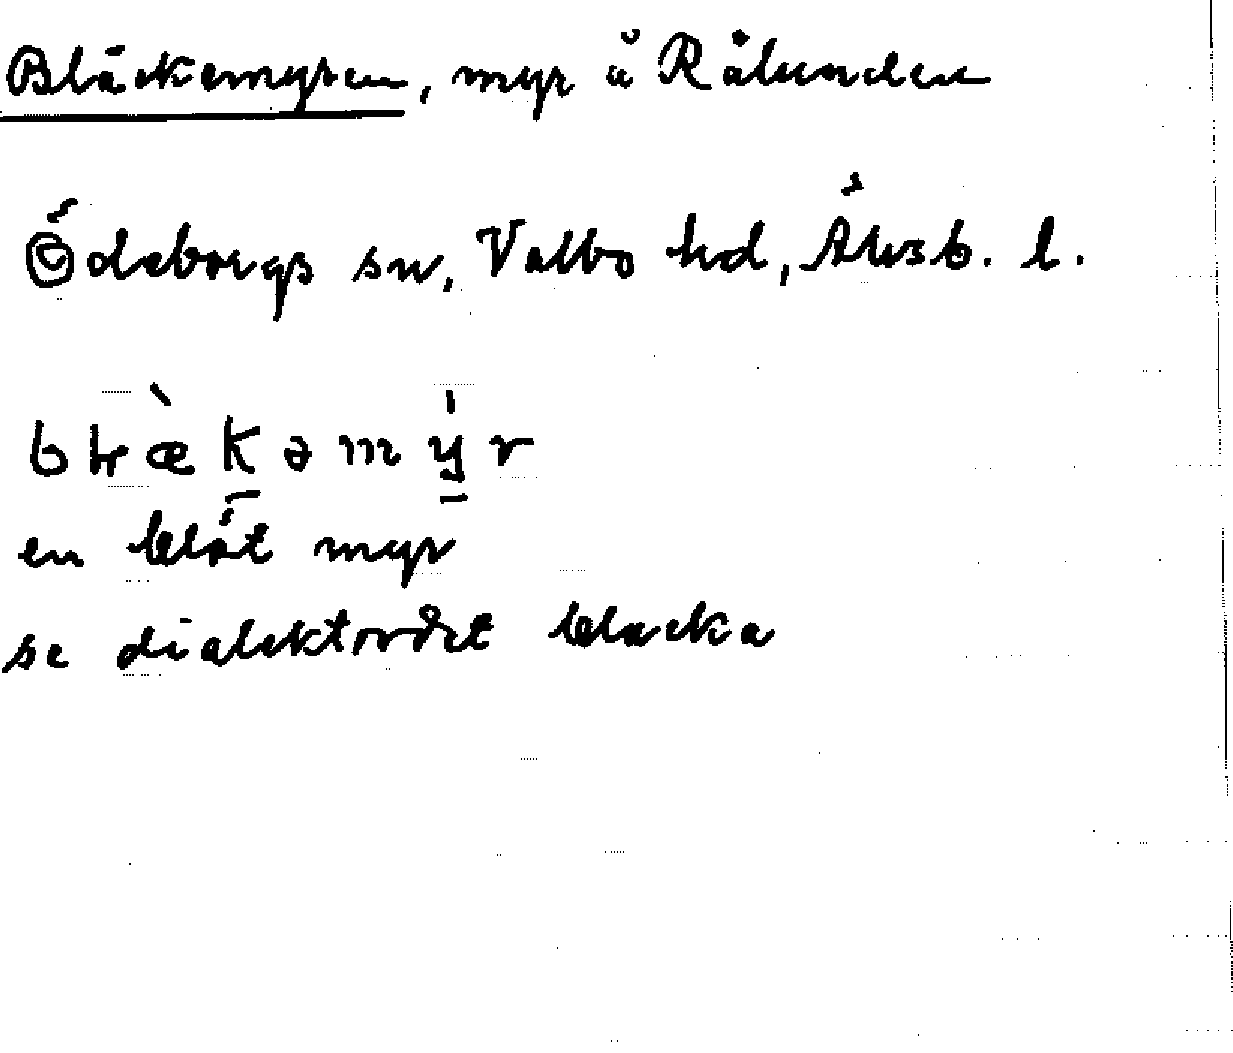 Bläckemyren, myr å Rålunden
Ödeborgs sn, Valbo hd, Älvsb. l.
blæ̀kəmy̍r
en blöt myr
se dialektordet blacka